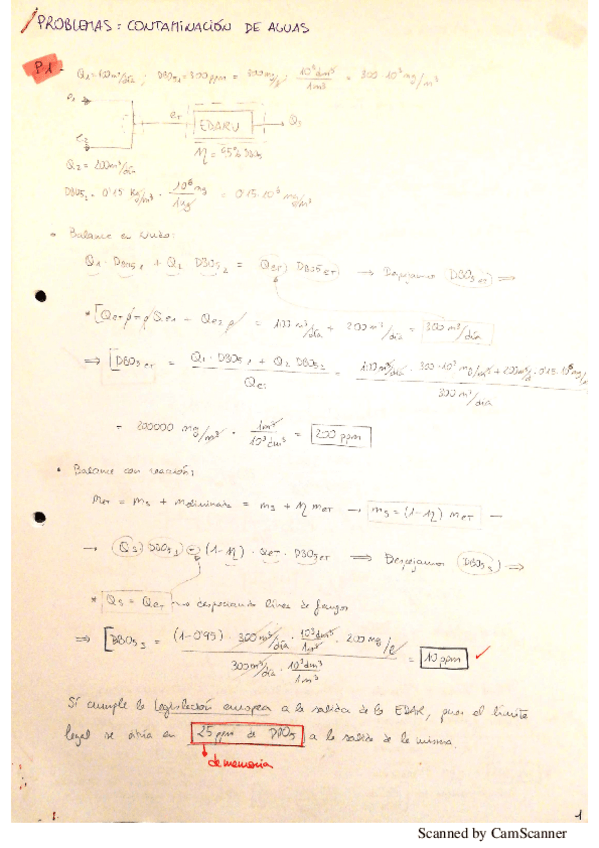 PROBLEMAS: CONTAMINACIÓN DE AGUAS
P1.- Q1=100m³/día ; DBO5,1=300ppm = 300mg/l ; 10³dm³/1m³ = 300·10³ mg/m³
e1
eT
EDARU
Q3
e2
η = 95% DBO5
Q2 = 200m³/día
DBO5,2 = 0'15 Kg/m³ · 10⁶ mg/1Kg = 0'15·10⁶ mg/m³
• Balance en nudo:
Q1 · DBO5,1 + Q2 DBO5,2 = QeT DBO5eT → Despejamos DBO5eT ⟹
= 100 m³/día + 200 m³/día = 300 m³/día
⟹ [DBO5eT = Q1 · DBO5,1 + Q2 DBO5,2 / QeT = 100m³/día · 300·10³ mg/m³ + 200m³/d · 0'15·10⁶ mg/m³ / 300 m³/día
= 200000 mg/m³ · 1m³/10³dm³ = 200 ppm
• Balance con reacción:
meT = m3 + meliminada = m3 + η meT → m3 = (1-η) meT →
→ Q3 DBO5,3 = (1-η) · QeT · DBO5eT ⟹ Despejamos DBO5,3 ⟹
* Q3 = QeT despreciando línea de fangos
⟹ [DBO5,3 = (1-0'95) · 300m³/día · 10³dm³/1m³ · 200mg/l / 300m³/día · 10³dm³/1m³ = 10 ppm ✓
Sí cumple la legislación europea a la salida de la EDAR, pues el límite
legal se sitúa en 25 ppm de DBO5 a la salida de la misma.
de memoria
1
Scanned by CamScanner